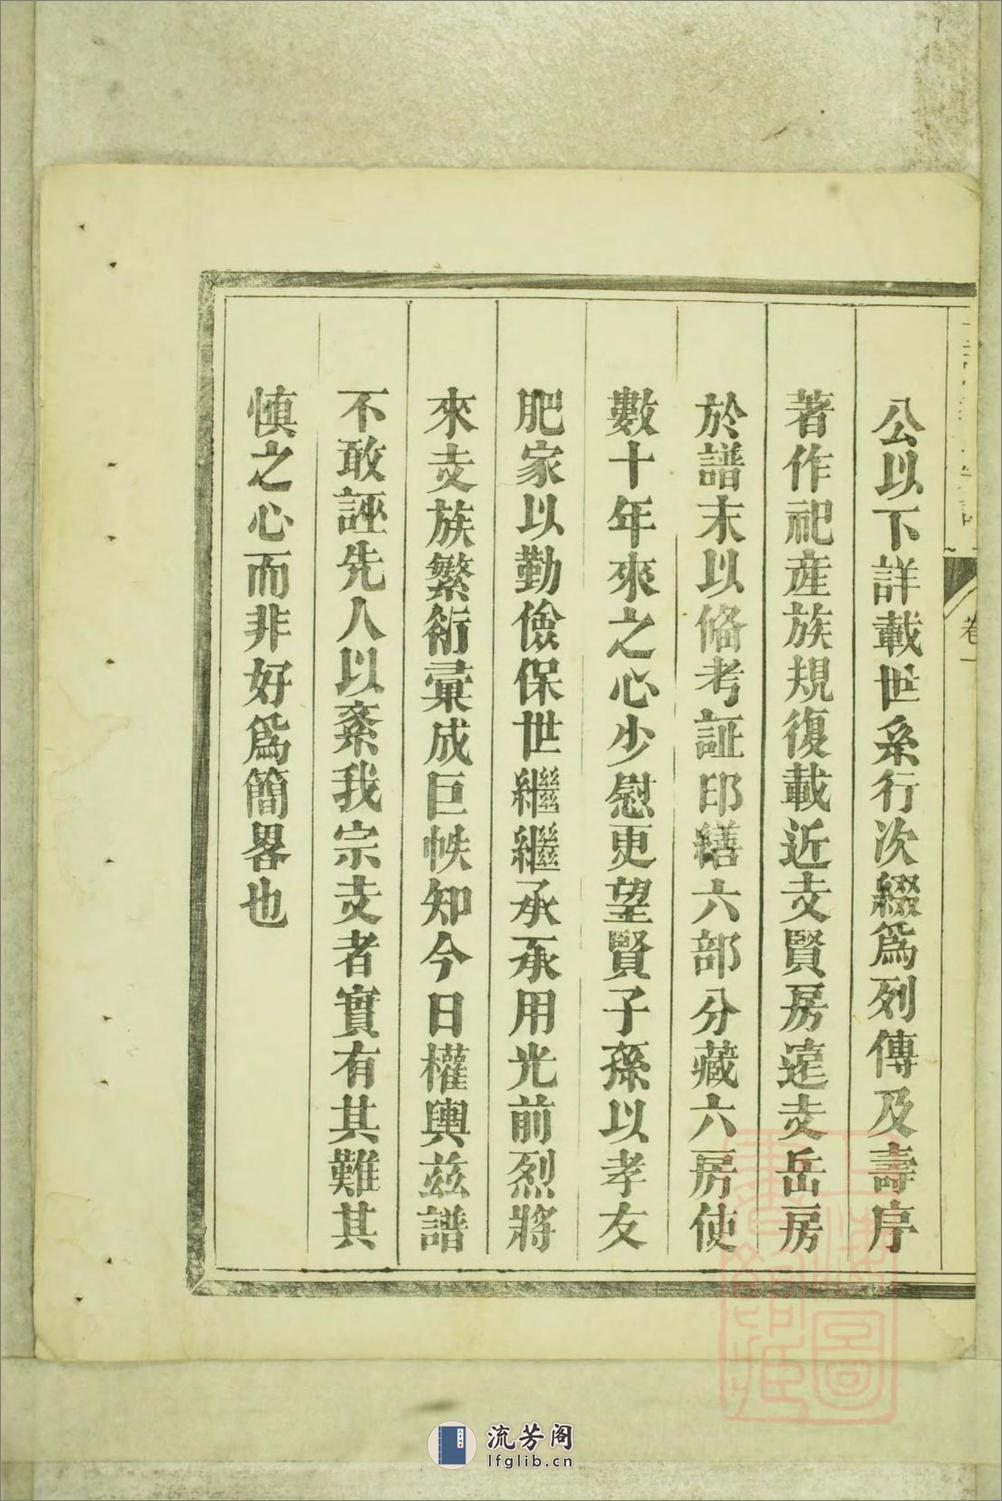 公以下詳載世系行次綴爲列傳及壽序
著作祀產族規復載近支賢房遠支岳房
於譜末以俻考証印繕六部分藏六房使
數十年來之心少慰更望賢子孫以孝友
肥家以勤儉保世繼繼承承用光前烈將
來支族繁衍彙成巨帙知今日權輿兹譜
不敢誣先人以紊我宗支者實有其難其
慎之心而非好爲簡畧也
卷一
流芳阁
lfglib.cn